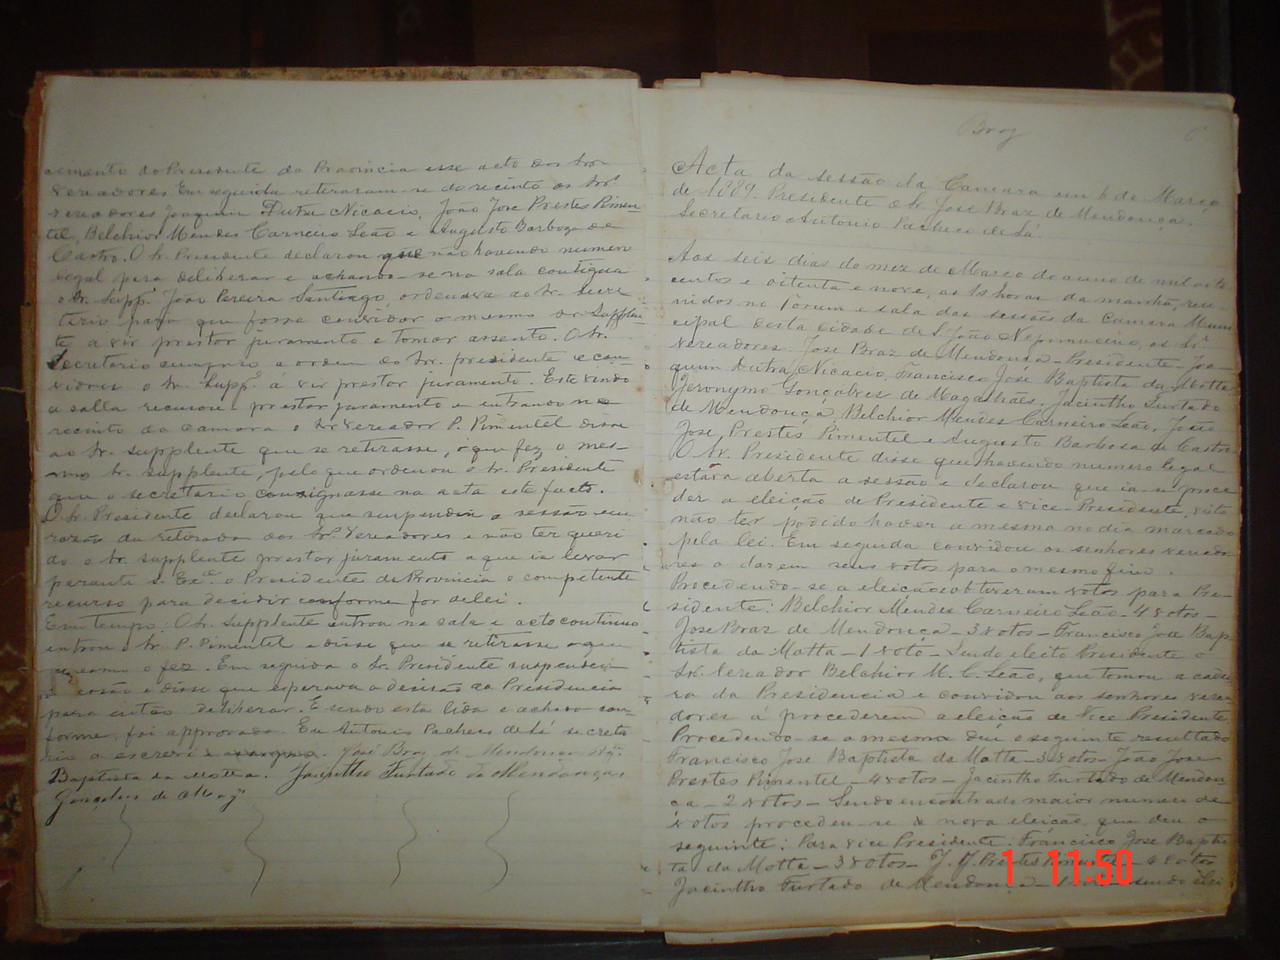 cimento do Presidente da Provincia esse acto dos Srs
vereadores. Em seguida retiraram-se do recinto os Srs
vereadores Joaquim Dutra Nicacio, João José Prestes Pimen-
tel, Belchior Mendes Carneiro Leão e Augusto Barboza de
Castro. O Sr. Presidente declarou que não havendo numero
legal para deliberar e achando-se na sala contigua
o Sr. Suppe João Pereira Santiago, ordenava ao Sr. Secre
tario para que fosse convidar o mesmo Sr. Supplen-
te a vir prestar juramento e tomar assento. O Sr.
Secretario cumprio a ordem do Sr. presidente e con-
vidou o Sr. Suppe á vir prestar juramento. Este vindo
a salla recusou prestar juramento e entrando no
recinto da camara o Sr Vereador P. Pimentel disse
ao Sr. supplente que se retirasse, o que fez o mes-
mo Sr. supplente, pelo que ordenou o Sr. Presidente
que o secretario consignasse na acta este facto.
O Sr. Presidente declarou que suspendia a sessão em
razão da retirada dos Srs. Vereadores e não ter queri
do o Sr supplente prestar juramento a que ia levar
perante S. Exca o Presidente da Provincia o competente
recurso para decidir conforme for de lei.
Em tempo. O Sr. Supplente entrou na sala e acto continuo
entrou o Sr. P. Pimentel e disse que se retirasse o que
o mesmo o fez. Em seguida o Sr. Presidente suspendeu
a sessão e disse que esperava a decisão da Presidencia
para então deliberar. E sendo esta lida e achada con-
forme, foi approvada. Eu Antonio Pacheco de Sá secreta
rio a escrevi. José Braz de Mendonça
Baptista da Motta. Jacintho Furtado de Mendonça
Gonçalves de Mags
Braz
6
Acta da sessão da Camara em 6 de Março
de 1889. Presidente o Sr. José Braz de Mendonça.
Secretario Antonio Pacheco de Sá.
Aos seis dias do mez de Março do anno de mil oito
centos e oitenta e nove, as horas da manhã, reu
nidos no Forum e sala das sessões da Camara Muni
cipal desta cidade de S. João Nepomuceno, os Srs
vereadores. José Braz de Mendonça - Presidente - Joa-
quim Dutra Nicacio, Francisco José Baptista da Motta
Jeronymo Gonçalves de Magalhães, Jacintho Furtado
de Mendonça, Belchior Mendes Carneiro Leão, João
José Prestes Pimentel e Augusto Barbosa de Castro.
O Sr. Presidente disse que havendo numero legal
estava aberta a sessão e declarou que ia-se proce
der a eleição de Presidente e vice-Presidente, visto
não ter podido haver a mesma no dia marcado
pela lei. Em seguida convidou os senhores vereado
res a darem seus votos para o mesmo fim.
Procedendo-se a eleição obtiveram votos para Pre-
sidente: Belchior Mendes Carneiro Leão - 4 votos -
José Braz de Mendonça - 3 votos - Francisco José Bap
tista da Motta - 1 voto - Sendo eleito Presidente o
Sr. Vereador Belchior M. C. Leão, que tomou a cadei
ra da Presidencia e convidou aos senhores verea
dores á procederem a eleição de Vice Presidente
Procedendo-se a mesma deu o seguinte resultado
Francisco José Baptista da Motta - 3 votos - João José
Prestes Pimentel - 4 votos - Jacintho Furtado de Mendon
ça - 2 votos - Sendo encontrado maior numero de
votos procedeu-se a nova eleição, que deu o
seguinte: Para vice Presidente: Francisco José Baptis
ta da Motta - 3 votos - J. J. Prestes Pimentel - 4 votos
Jacintho Furtado de Mendonça - 1 sendo elei
1 11:50